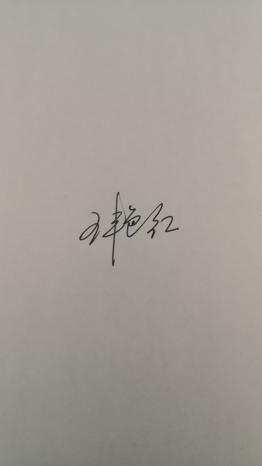 王艳红